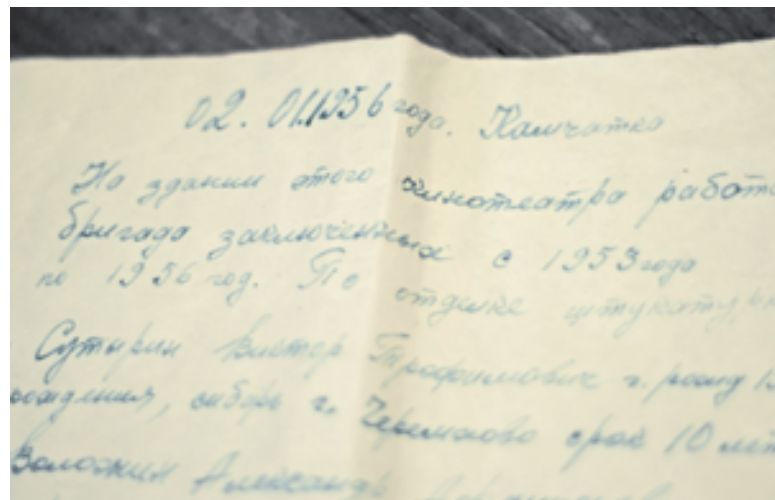 02. 01.1956 года. Камчатка
На здании этого кинотеатра работ
бригада заключенных с 1953 года
по 1956 год. По отделке штукатур
Сутырин Виктор Трофимович г. рожд 1
рождения, сибирь г. Черемхово срок 10 лет
Воложин Александр